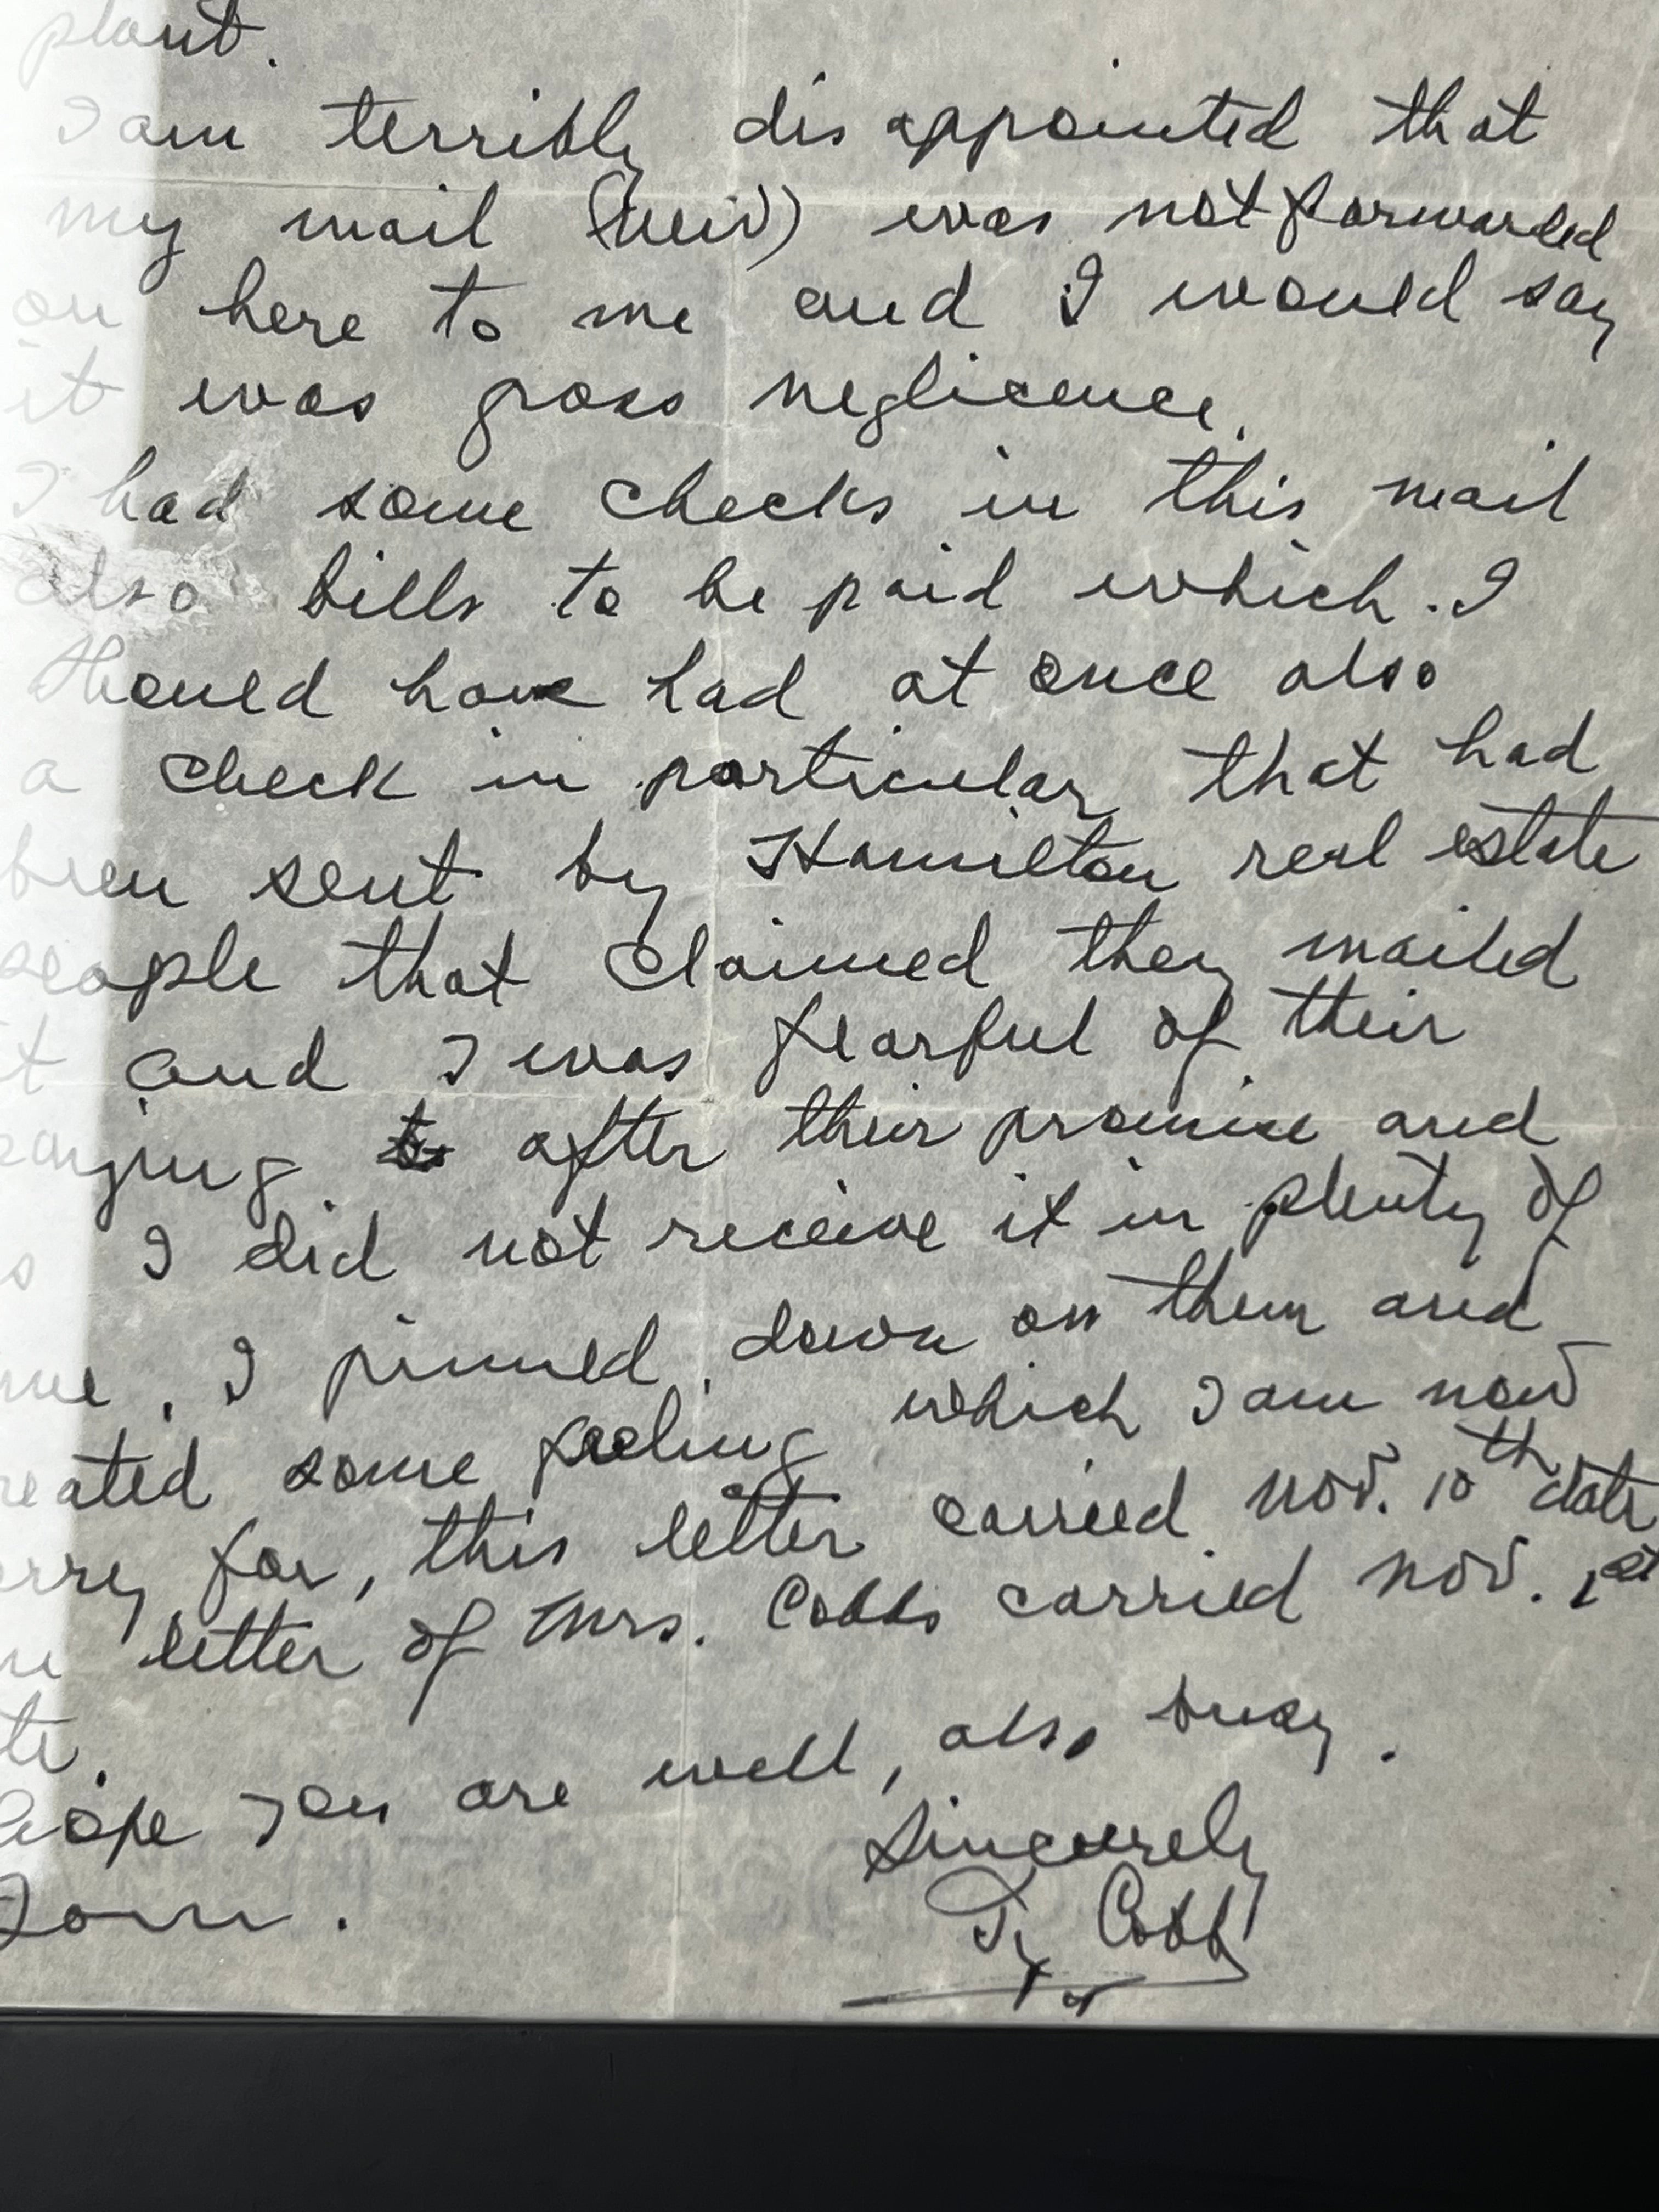 plant.
I am terribly disappointed that
my mail (here) was not forwarded
on here to me and I would say
it was gross neglicence.
I had some checks in this mail
also bills to be paid which. I
should have had at once also
a check in particular that had
been sent by Hamilton real estate
people that claimed they mailed
it and I was fearful of their
saying. after their promise and
I did not receive it in plenty of
me. I pinned down on them and
reated some feeling which I am now
orry for, this letter carried Nov. 10th date
letter of Mrs. Cobbs carried Nov. 1st
te.
hope you are well, also busy.
Sincerely
Ty Cobb